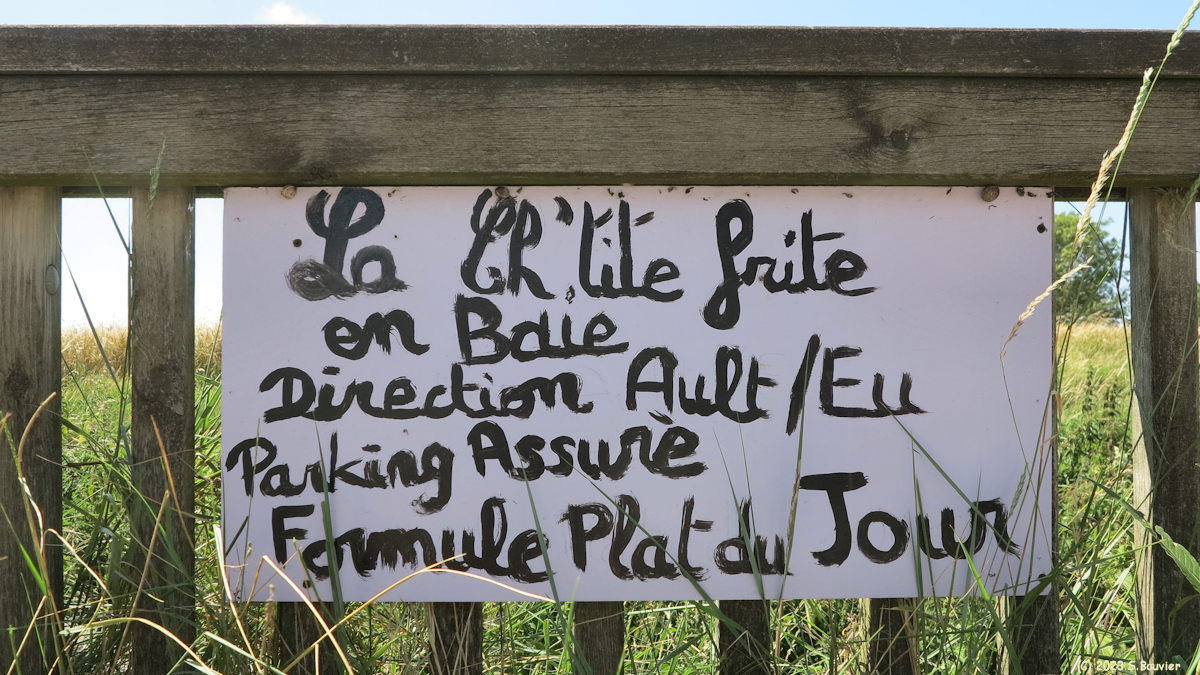 La Ch'tite frite
en Baie
Direction Ault/Eu
Parking Assuré
Formule Plat du Jour
(C) 2023 S.Bouvier